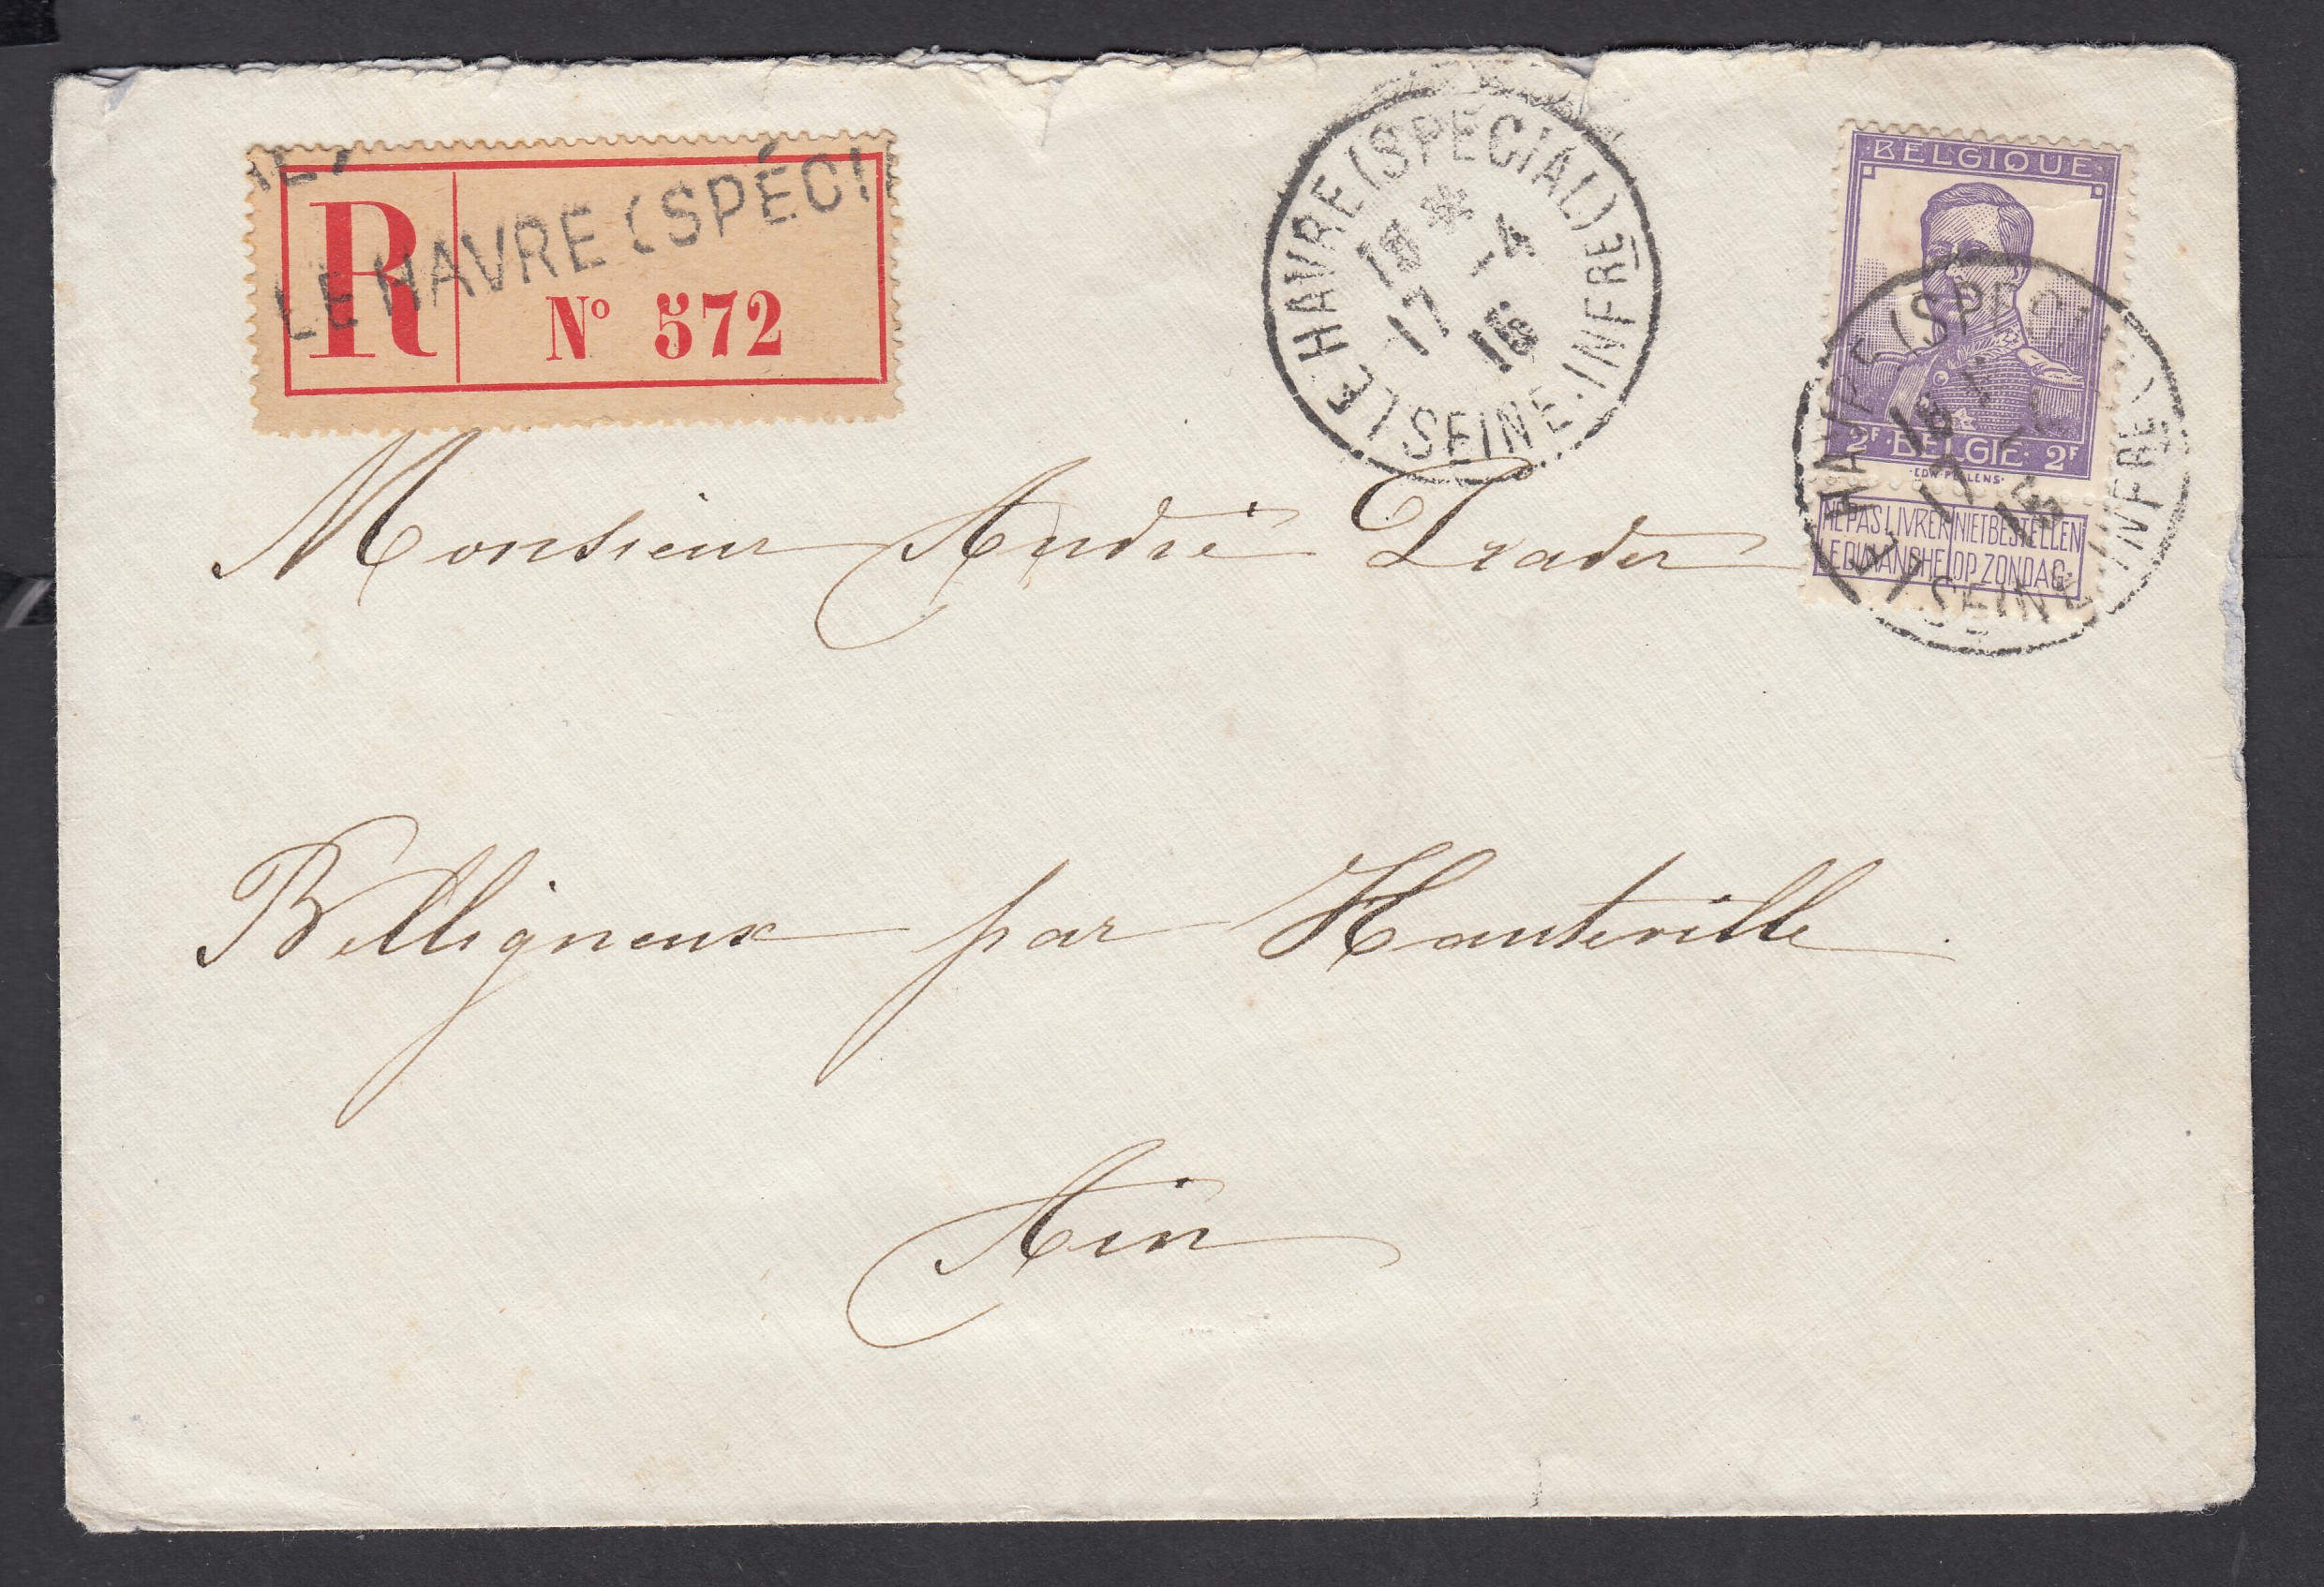 LE HAVRE (SPÉCI
R
Nº 572
LE HAVRE (SPÉCIAL) SEINE-INFRE
17 -4
BELGIQUE
2F BELGIE 2F
EDW PELLENS
NE PAS LIVRER LE DIMANCHE
NIET BESTELLEN OP ZONDAG
HAVRE (SPÉCI
SEINE INFRE
Monsieur André
Belligneux par Hauteville
Ain